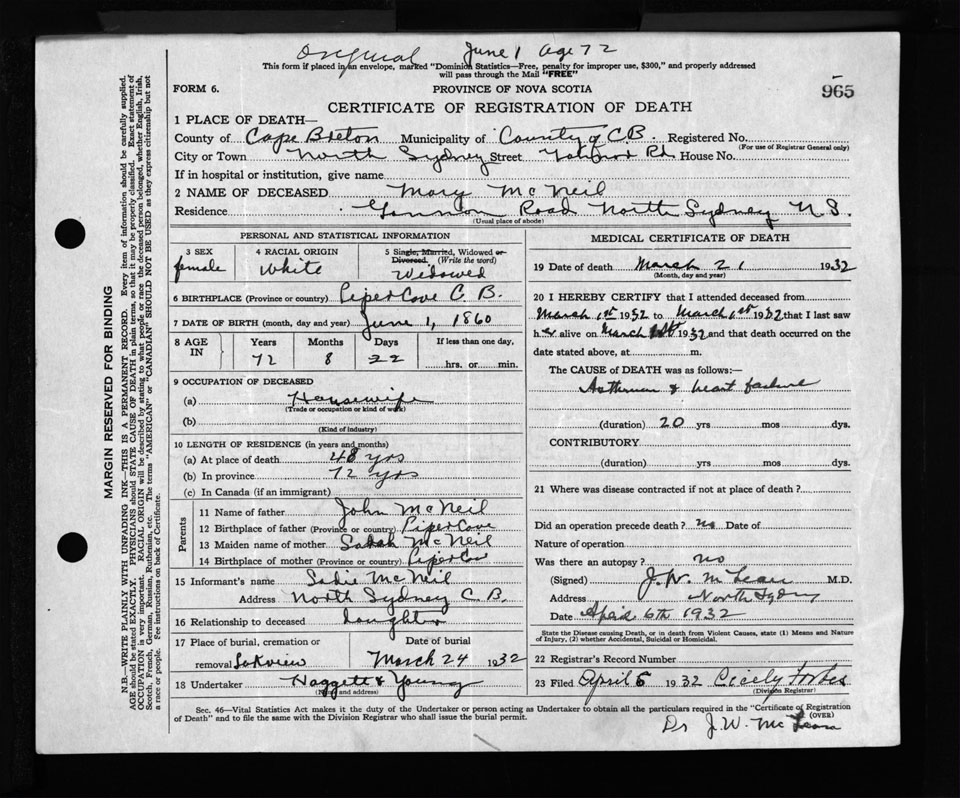 Original June 1 age 72
This form if placed in an envelope, marked "Dominion Statistics—Free, penalty for improper use, $300," and properly addressed
will pass through the Mail "FREE"
FORM 6. PROVINCE OF NOVA SCOTIA 965
CERTIFICATE OF REGISTRATION OF DEATH
1 PLACE OF DEATH—
County of Cape Breton Municipality of County of C.B. Registered No.
(For use of Registrar General only)
City or Town North Sydney Street Rd. House No.
If in hospital or institution, give name
2 NAME OF DECEASED Mary McNeil
Residence Road North Sydney N.S.
(Usual place of abode)
PERSONAL AND STATISTICAL INFORMATION
3 SEX 4 RACIAL ORIGIN 5 Single, Married, Widowed or
Divorced. (Write the word)
female White Widowed
6 BIRTHPLACE (Province or country) Piper Cove C.B.
7 DATE OF BIRTH (month, day and year) June 1, 1860
8 AGE IN Years Months Days If less than one day,
72 8 22 hrs. or min.
9 OCCUPATION OF DECEASED
(a) Housewife
(Trade or occupation or kind of work)
(b)
(Kind of industry)
10 LENGTH OF RESIDENCE (in years and months)
(a) At place of death 48 yrs
(b) In province 72 yrs
(c) In Canada (if an immigrant)
Parents
11 Name of father John McNeil
12 Birthplace of father (Province or country) Piper Cove
13 Maiden name of mother Sarah McNeil
14 Birthplace of mother (Province or country) Piper Cove
15 Informant's name Sadie McNeil
Address North Sydney C.B.
16 Relationship to deceased Daughter
17 Place of burial, cremation or Date of burial
removal March 24 1932
18 Undertaker Haggett & Young
(Name and address)
MEDICAL CERTIFICATE OF DEATH
19 Date of death March 21 1932
(Month, day and year)
20 I HEREBY CERTIFY that I attended deceased from
March 1st 1932 to March 1st 1932 that I last saw
her alive on March 1st 1932 and that death occurred on the
date stated above, at m.
The CAUSE of DEATH was as follows:—
& heart failure
(duration) 20 yrs mos dys.
CONTRIBUTORY
(duration) yrs mos dys.
21 Where was disease contracted if not at place of death?
Did an operation precede death? no Date of
Nature of operation
Was there an autopsy? no
(Signed) J. W. McLean M.D.
Address North Sydney
Date April 6th 1932
State the Disease causing Death, or in death from Violent Causes, state (1) Means and Nature
of Injury, (2) whether Accidental, Suicidal or Homicidal.
22 Registrar's Record Number
23 Filed April 6 1932 Cicily Forbes
(Division Registrar)
Sec. 46—Vital Statistics Act makes it the duty of the Undertaker or person acting as Undertaker to obtain all the particulars required in the "Certificate of Registration
of Death" and to file the same with the Division Registrar who shall issue the burial permit. (OVER)
Dr J. W. McLean
MARGIN RESERVED FOR BINDING
N.B.—WRITE PLAINLY WITH UNFADING INK—THIS IS A PERMANENT RECORD. Every item of information should be carefully supplied.
AGE should be stated EXACTLY. PHYSICIANS should STATE CAUSE OF DEATH in plain terms, so that it may be properly classified. Exact statement of
OCCUPATION is very important. RACIAL ORIGIN will be described by stating to what people or race the deceased person belonged, whether English, Irish,
Scotch, French, German, Russian, Ruthenian, etc. The terms "AMERICAN" "CANADIAN" SHOULD NOT BE USED as they express citizenship but not
a race or people. Fee instructions on back of Certificate.